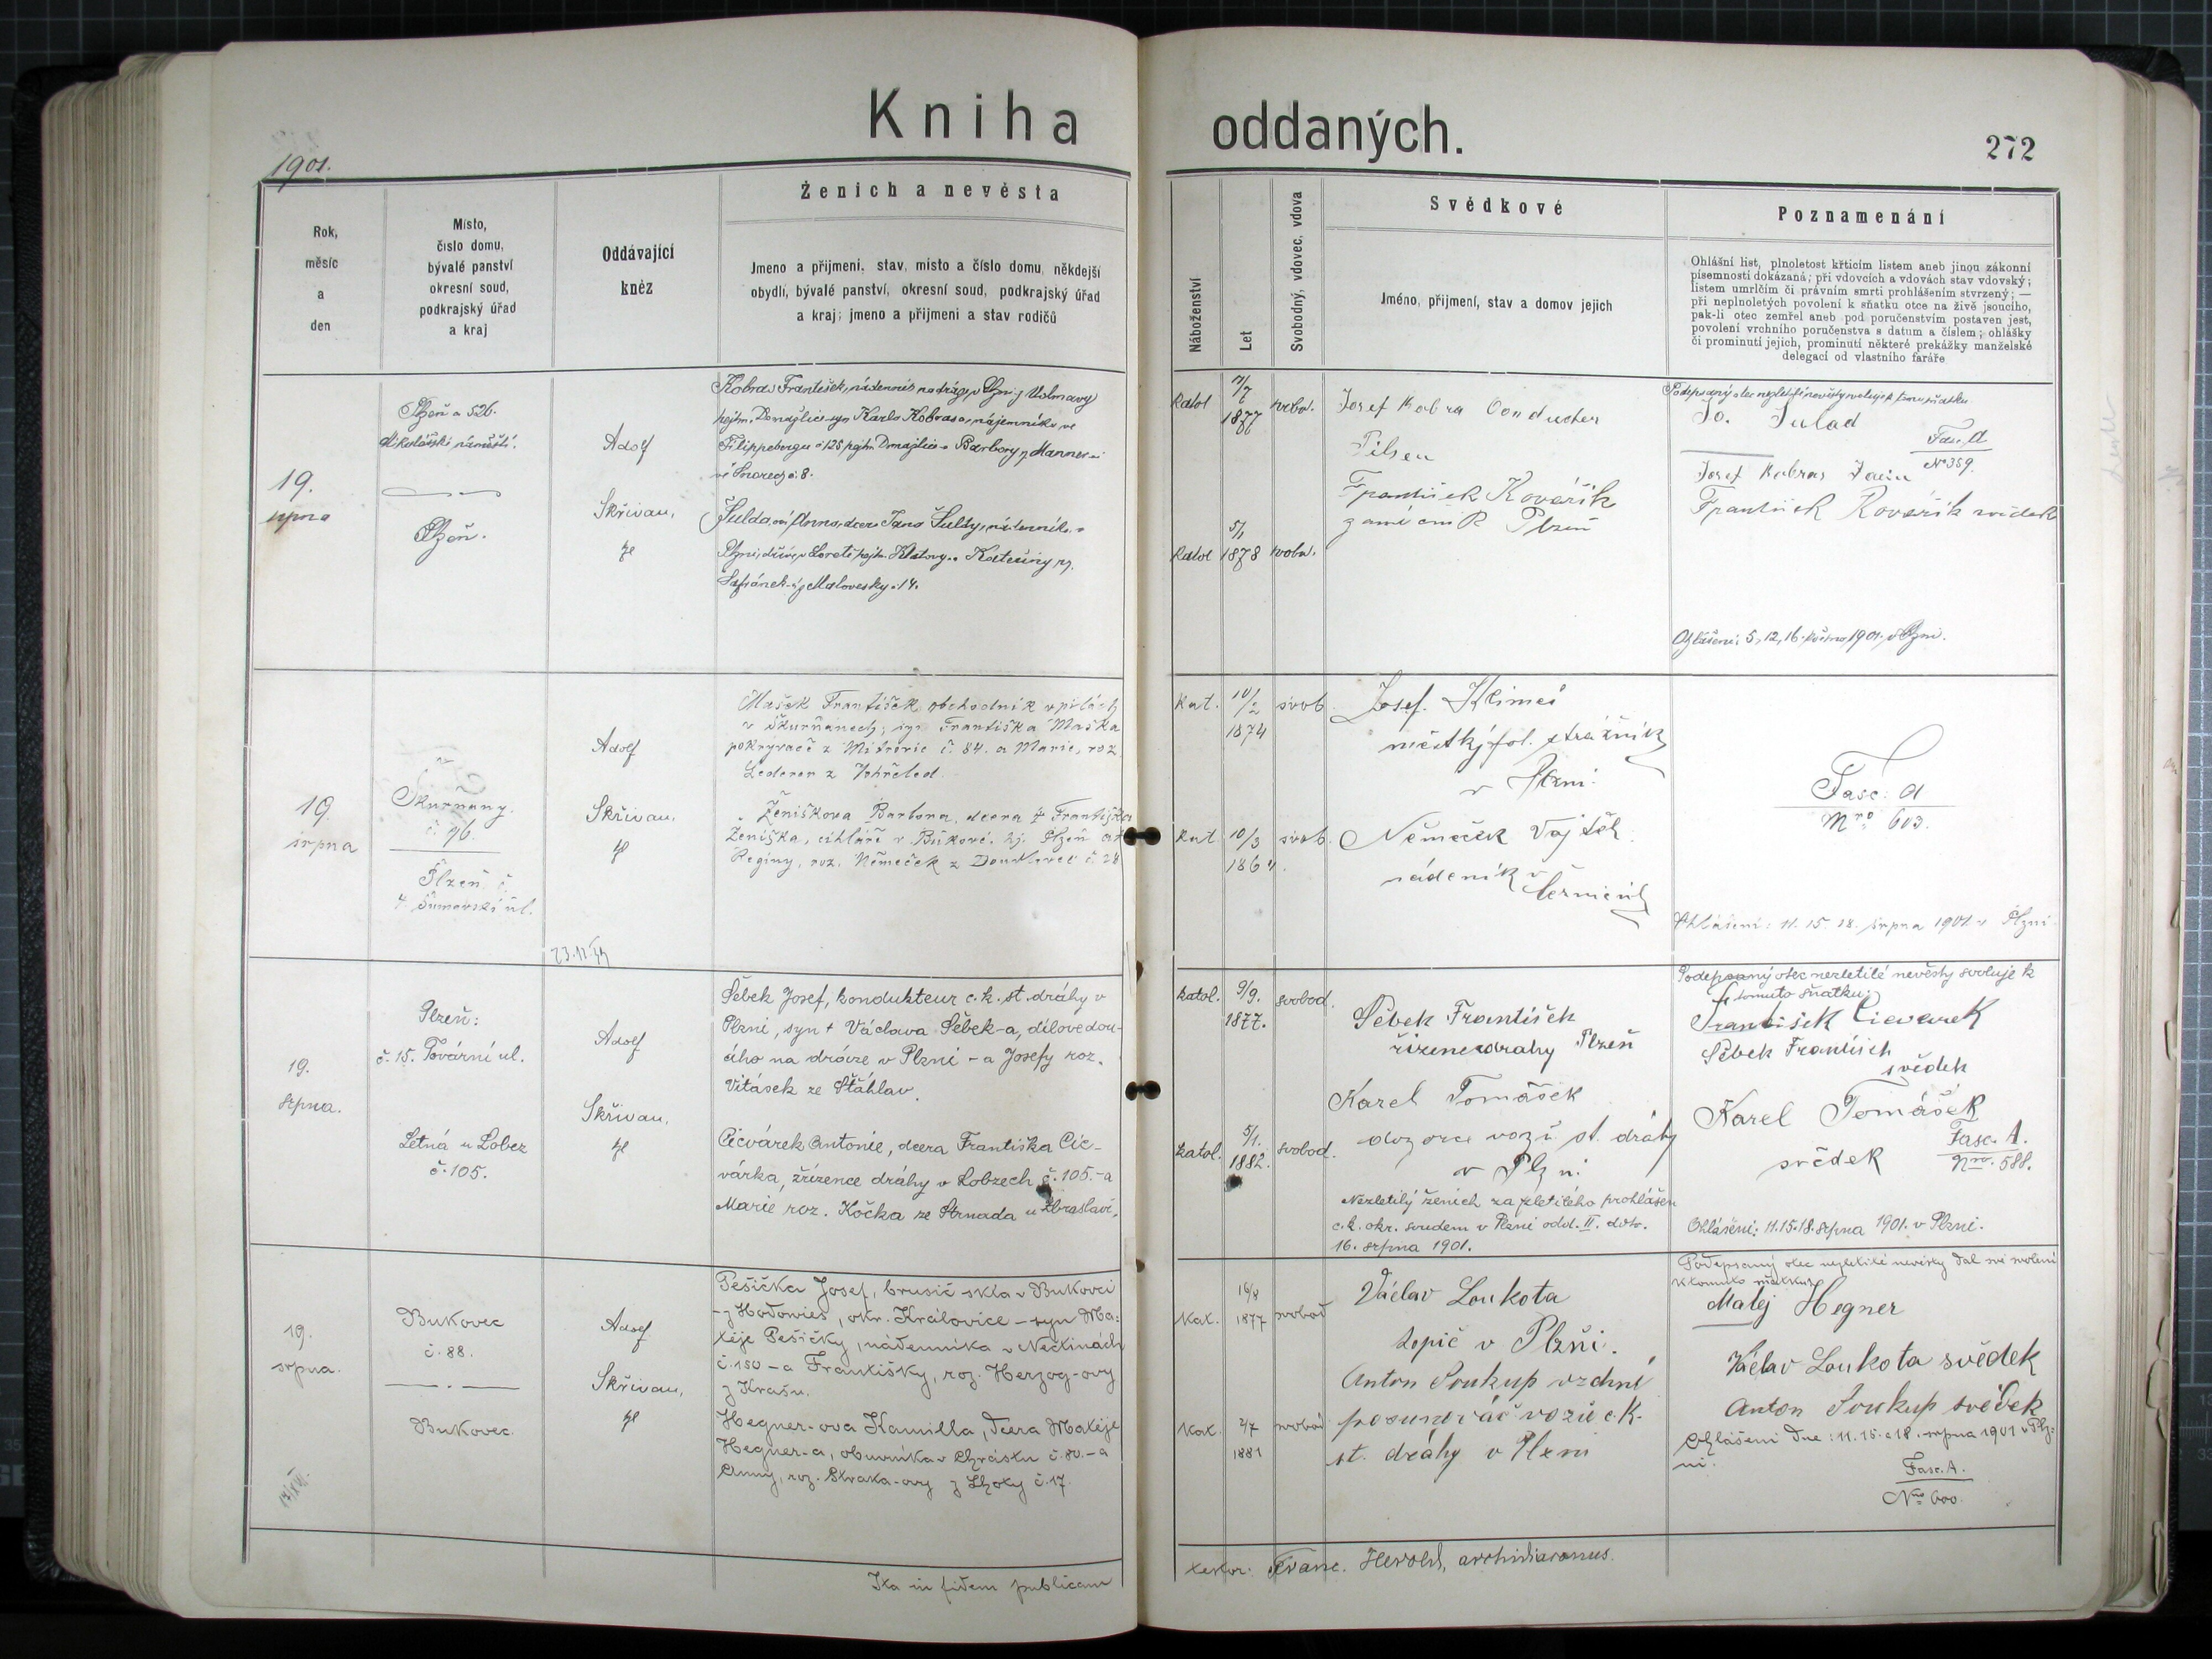 Kniha oddaných.
272
1901.
Rok,
měsíc
a
den
Místo,
číslo domu,
bývalé panství
okresní soud,
podkrajský úřad
a kraj
Oddávající
kněz
Ženich a nevěsta
Jmeno a přijmení, stav, místo a číslo domu, někdejší
obydlí, bývalé panství, okresní soud, podkrajský úřad
a kraj; jmeno a přijmeni a stav rodičů
Náboženství
Let
Svobodný, vdovec, vdova
Svědkové
Jméno, přijmení, stav a domov jejich
Poznamenání
Ohlášní list, plnoletost křticím listem aneb jinou zákonní
písemností dokázaná; při vdovcích a vdovách stav vdovský;
listem umrlčím či právním smrti prohlášením stvrzený; —
při neplnoletých povolení k sňatku otce na živě jsoucího,
pak-li otec zemřel aneb pod poručenstvím postaven jest,
povolení vrchního poručenstva s datum a číslem; ohlášky
či prominutí jejich, prominutí některé prekážky manželské
delegací od vlastního faráře
19.
srpna
Plzeň a 526.
Mikulášské náměstí.
Plzeň.
Adolf
Skřivan,
Kobras František,
Domažlice syn Karla Kobrasa, nájemníka ve
Filippsbergu č 125 hejtm. Domažlice a Barbory
č. 8.
Šulda-ová Anna, dcera Jana Šuldy, nádenníka v
Plzni, dříve v Loretě hejtm. Klatovy a Kateřiny roz.
Šafránek z Malovesky č 14.
katol
7/7
1877
svobod.
katol
5/1
1878
svobod.
Josef Kobra Conducter
Pilsen
František Kovářik
zamečník Plzeň
Podepsaný otec nezletilé nevěsty svoluje k tomu sňatku
Jo. Šulad
Fasc. A
No 359.
Josef Kobras
František Kovářik svědek
Ohlášení: 5, 12, 16. května 1901. v Plzni.
19.
srpna
Škurňany.
č. 96.
Plzeň č.
4. Šumavská ul.
Adolf
Skřivan,
23.11.44
Mašek František obchodník v pilách
v Škurňanech, syn Františka Maška
pokrývače z Mitrovic č. 84. a Marie, roz.
Lederer z Vohřeled.
Ženíškova Barbora, dcera † Františka
Ženíška, cihláře v Búkové. hj. Plzeň a †
Reginy, roz. Němeček z Doudlevec č. 28
Kat.
10/2
1874
svob.
Kat.
10/3
1864
svob.
Josef Klimeš
městký pol. strážník
v Plzni.
Němeček Vojtěch
nádeník v
Černicích
Fasc. A
Nro 603.
Ohlášení: 11. 15. 18. srpna 1901 v Plzni.
19.
srpna.
Plzeň:
č. 15. Tovární ul.
Letná u Lobez
č. 105.
Adolf
Skřivan,
Šebek Josef, kondukteur c. k. st. dráhy v
Plzni, syn † Václava Šebek-a, dílovedou-
cího na dráze v Plzni - a Josefy roz.
Vitásek ze Štáhlav.
Cicvárek Antonie, dcera Františka Cic-
várka, zřízence dráhy v Lobzech č. 105. - a
Marie roz. Kočka ze Strnada u Zbraslavi.
katol.
9/9.
1877.
svobod.
katol.
5/1.
1882.
svobod.
Šebek František
řizenec drahy Plzeň
Karel Tomášek
dozorce vozů st. dráhy
v Plzni
Nezletilý ženich za zletilého prohlášen
c. k. okr. soudem v Plzni odd. II. dto.
16. srpna 1901.
Podepsaný otec nezletilé nevěsty svoluje k
tomuto sňatku:
František Cicvarek
Šebek František
svědek
Karel Tomášek
svědek
Fasc. A.
Nro. 588.
Ohlášení: 11. 15. 18. srpna 1901. v Plzni.
19.
srpna.
Bukovec
č. 88.
Bukovec.
Adolf
Skřivan,
Pešička Josef, brusič skla v Bukovci
- z Hodovies, okr. Kralovice - syn Ma-
těje Pešičky, nádenníka v Nečtinách
č. 150 - a Františky, roz. Herzog-ovy
z Krašn.
Hegner-ova Kamilla, dcera Matěje
Hegner-a, obuvníka v Chrástu č. 80. - a
Anny, roz. Straka-ovy z Lhoty č. 17.
Kat.
16/8
1877
svobod
Kat.
2/7
1881
svobod
Václav Loukota
topič v Plzňi.
Anton Soukup vrchní
posunovač vozů c. K.
st. dráhy v Plzni
Podepsaný otec nezletilé nevěsty dal své svolení
k tomuto sňatku:
Matěj Hegner
Václav Loukota svědek
Anton Soukup svědek
Ohlášení dne: 11. 15. a 18. srpna 1901 v Plz-
ni.
Fasc. A.
Nro 600.
Ita in fidem publicam
testor: Franc. Herold, archidiaconus.